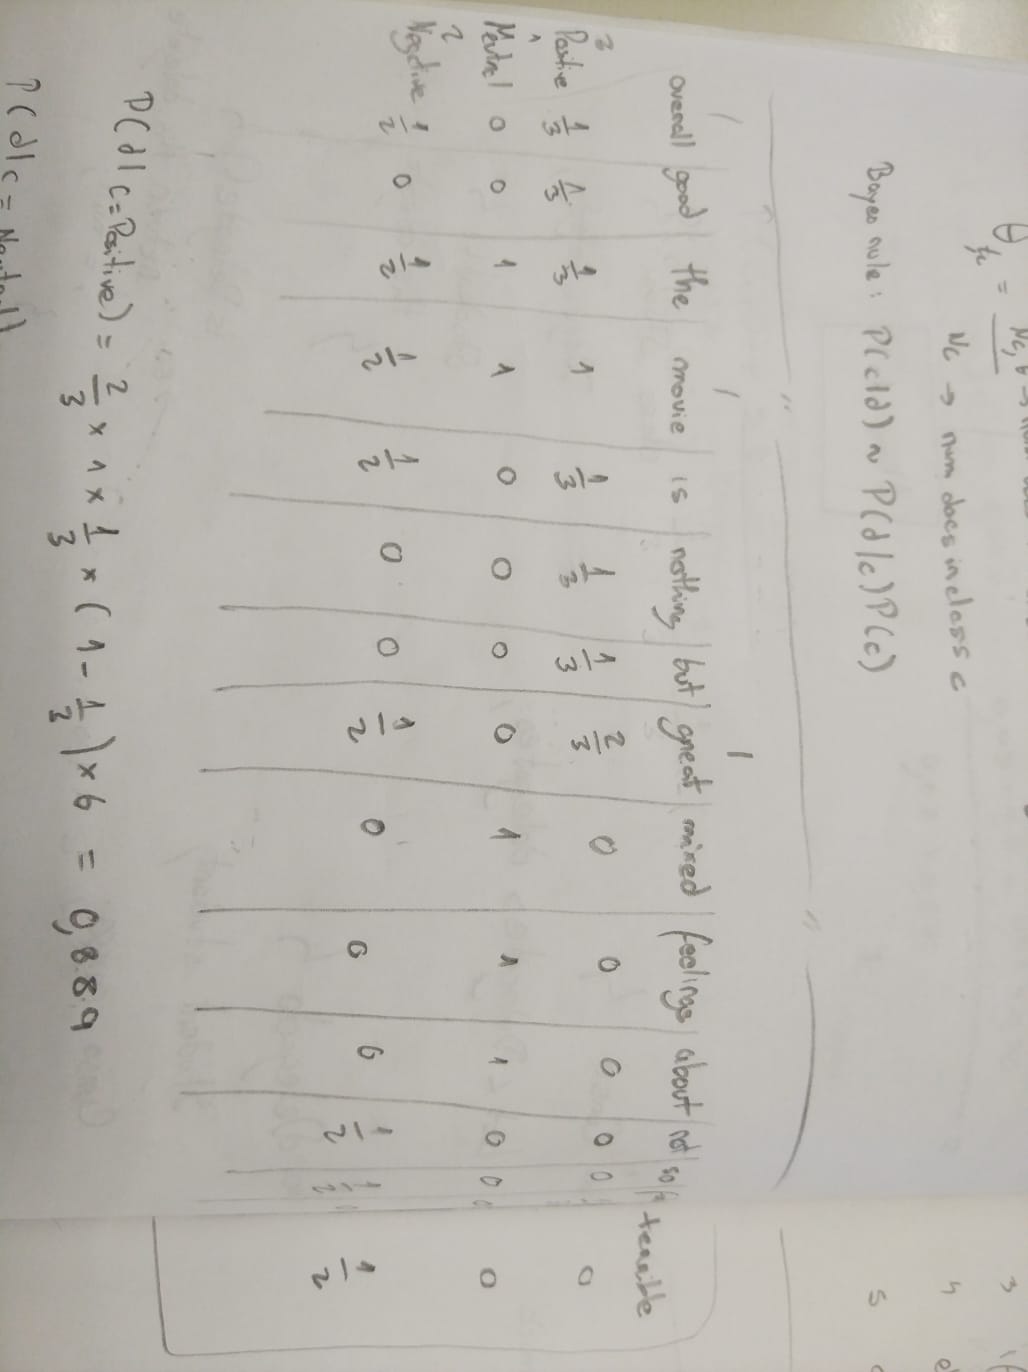 θ fc = Nc,t →
Nc → num docs in class c
Bayes rule: P(c|d) ~ P(d|c) P(c)
overall | good | the | movie | is | nothing | but | great | mixed | feelings | about | not | so | terrible
3 Positive 1/3 1/3 1/3 1 1/3 1/3 1/3 2/3 0 0 0 0 0 0
1 Neutral 0 0 1 1 0 0 0 0 1 1 1 0 0 0
2 Negative 1/2 0 1/2 1/2 1/2 0 0 1/2 0 0 0 1/2 1/2 1/2
P(d|c=Positive) = 2/3 x 1 x 1/3 x (1 - 1/3) x 6 = 0,889
P(d|c = Neutral)
3
4
5